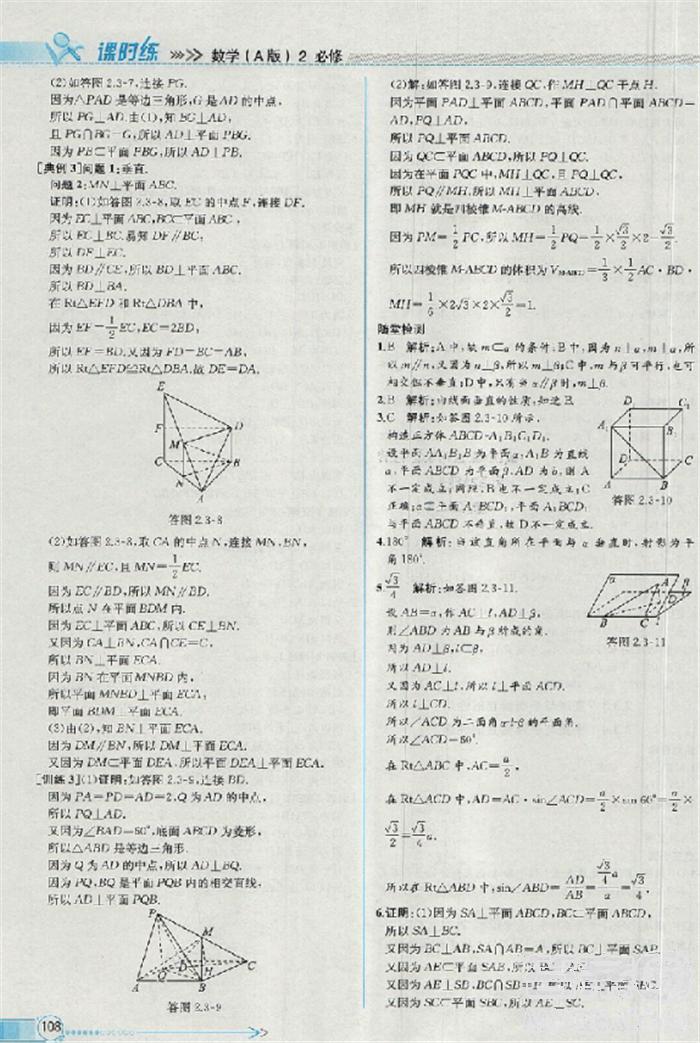 课时练 数学(A版) 2 必修
(2)如答图2.3-7,连接PG.
因为△PAD是等边三角形,G是AD的中点,
所以PG⊥AD.由(1),知BG⊥AD,
且PG∩BG=G,所以AD⊥平面PBG.
因为PB⊂平面PBG,所以AD⊥PB.
[典例3]问题1:垂直.
问题2:MN⊥平面ABC.
证明:(1)如答图2.3-8,取EC的中点F,连接DF.
因为EC⊥平面ABC,BC⊂平面ABC,
所以EC⊥BC.易知DF∥BC,
所以DF⊥EC.
因为BD∥CE,所以BD⊥平面ABC.
所以BD⊥BA.
在Rt△EFD和Rt△DBA中,
因为EF=1/2EC,EC=2BD,
所以EF=BD.又因为FD=BC=AB,
所以Rt△EFD≌Rt△DBA.故DE=DA.
E
F D
M
C B
N
A
答图2.3-8
(2)如答图2.3-8,取CA的中点N,连接MN,BN,
则MN∥EC,且MN=1/2EC.
因为EC∥BD,所以MN∥BD.
所以点N在平面BDM内.
因为EC⊥平面ABC,所以CE⊥BN.
又因为CA⊥BN,CA∩CE=C,
所以BN⊥平面ECA.
因为BN在平面MNBD内,
所以平面MNBD⊥平面ECA,
即平面BDM⊥平面ECA.
(3)由(2),知BN⊥平面ECA.
因为DM∥BN,所以DM⊥平面ECA.
又因为DM⊂平面DEA,所以平面DEA⊥平面ECA.
[训练3](1)证明:如答图2.3-9,连接BD.
因为PA=PD=AD=2,Q为AD的中点,
所以PQ⊥AD.
又因为∠BAD=60°,底面ABCD为菱形,
所以△ABD是等边三角形.
因为Q为AD的中点,所以AD⊥BQ.
因为PQ,BQ是平面PQB内的相交直线,
所以AD⊥平面PQB.
P
M
Q D H C
A B
答图2.3-9
108
(2)解:如答图2.3-9,连接QC,作MH⊥QC于点H.
因为平面PAD⊥平面ABCD,平面PAD∩平面ABCD=
AD,PQ⊥AD,
所以PQ⊥平面ABCD.
因为QC⊂平面ABCD,所以PQ⊥QC.
因为在平面PQC中,MH⊥QC,且PQ⊥QC,
所以PQ∥MH,所以MH⊥平面ABCD,
即MH就是四棱锥M-ABCD的高线.
因为PM=1/2PC,所以MH=1/2PQ=1/2×√3/2×2=√3/2.
所以四棱锥M-ABCD的体积为V_M-ABCD=1/3×1/2AC·BD·
MH=1/6×2√3×2×√3/2=1.
随堂检测
1.B 解析:A中,缺m⊂α的条件;B中,因为n⊥α,m⊥α,所
以m∥n,又因为n⊥β,所以m⊥β;C中,m与β可平行,也可
相交但不垂直;D中,只有当α∥β时,m⊥β.
2.B 解析:由线面垂直的性质,知选B.
3.C 解析:如答图2.3-10所示,
构造正方体ABCD-A₁B₁C₁D₁.
设平面AA₁B₁B为平面α,A₁B为直线
a,平面ABCD为平面β,AD为b,则A
不一定成立;同理,B也不一定成立;C
正确;a⊂平面A₁BCD₁,平面A₁BCD₁
与平面ABCD不垂直,故D不一定成立.
D₁ C₁
A₁ B₁
D C
A B
答图2.3-10
4.180° 解析:当该直角所在平面与α垂直时,射影为平
角180°.
5.√3/4 解析:如答图2.3-11.
设AB=a,作AC⊥l,AD⊥β,
则∠ABD为AB与β所成的角.
因为AD⊥β,l⊂β,
所以AD⊥l.
又因为AC⊥l,所以l⊥平面ACD.
所以l⊥CD.
所以∠ACD为二面角α-l-β的平面角.
所以∠ACD=60°.
α A
D
B C l
答图2.3-11
在Rt△ABC中,AC=a/2,
在Rt△ACD中,AD=AC·sin∠ACD=a/2×sin 60°=a/2×
√3/2=√3/4a.
所以在Rt△ABD中,sin∠ABD=AD/AB=(√3/4a)/a=√3/4.
6.证明:(1)因为SA⊥平面ABCD,BC⊂平面ABCD,
所以SA⊥BC.
又因为BC⊥AB,SA∩AB=A,所以BC⊥平面SAB.
又因为AE⊂平面SAB,所以
又因为AE⊥SB,BC∩SB=
又因为SC⊂平面SBC,所以AE⊥SC.